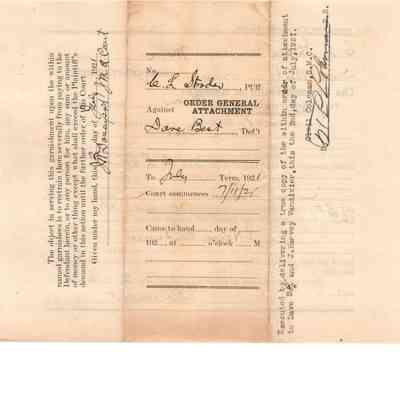 The object in serving this garnishment upon the within
named garnishees is to restrain them severally from paying to the
Defendant herein, or to any person for him, any sum or amount
of money or other thing except what shall exceed the Plaintiff's
demand in this action until the further order of this Court.
Given under my hand, this day of July 1921
No.
C. L. Stroder, Pl'ff
Against ORDER GENERAL
ATTACHMENT
Dave Best Def't
To July Term, 1921
Court commences 7/11/21
Came to hand day of
192 at o'clock M
Executed by delivering a true copy of the within order of attachment
to Dave and J. Harvey Vandivier, this the 2nd, day of July, 1921.
Coleman S.M.C.